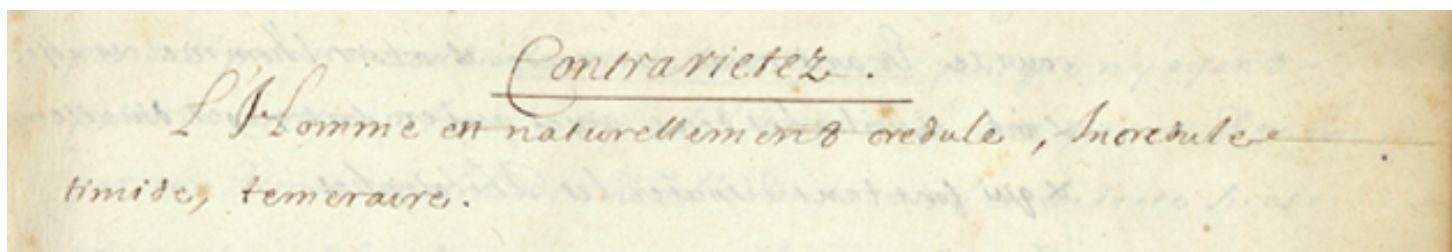 Contrarietez.
L'Homme est naturellement credule, Incredule
timide, temeraire.